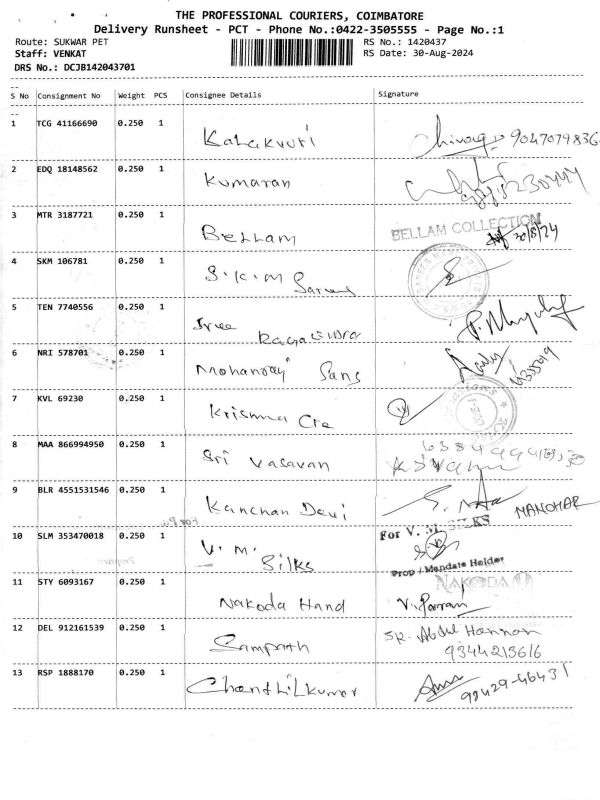 THE PROFESSIONAL COURIERS, COIMBATORE
Delivery Runsheet - PCT - Phone No.:0422-3505555 - Page No.:1
Route: SUKWAR PET RS No.: 1420437
Staff: VENKAT RS Date: 30-Aug-2024
DRS No.: DCJB142043701
S No Consignment No Weight PCS Consignee Details Signature
1 TCG 41166690 0.250 1 9047079836
2 EDQ 18148562 0.250 1 Kumaran
3 MTR 3187721 0.250 1 Bellam BELLAM COLLECTION 30/8/24
4 SKM 106781 0.250 1 S.K.M Sarees
5 TEN 7740556 0.250 1 Sree Ragavendra
6 NRI 578701 0.250 1 Mohanraj Sans
7 KVL 69230 0.250 1 Krisnna Cre
8 MAA 866994950 0.250 1 Sri Vasavan
9 BLR 4551531546 0.250 1 Kanchan Devi MANOHAR
10 SLM 353470018 0.250 1 V.M. Silks For V. M. SILKS
Prop / Mandate Holder
11 STY 6093167 0.250 1 Nakoda Hand NAKODA
12 DEL 912161539 0.250 1 Sampath SK. Abdul Hannan
9344213616
13 RSP 1888170 0.250 1 Chanthilkumar 98429-46431